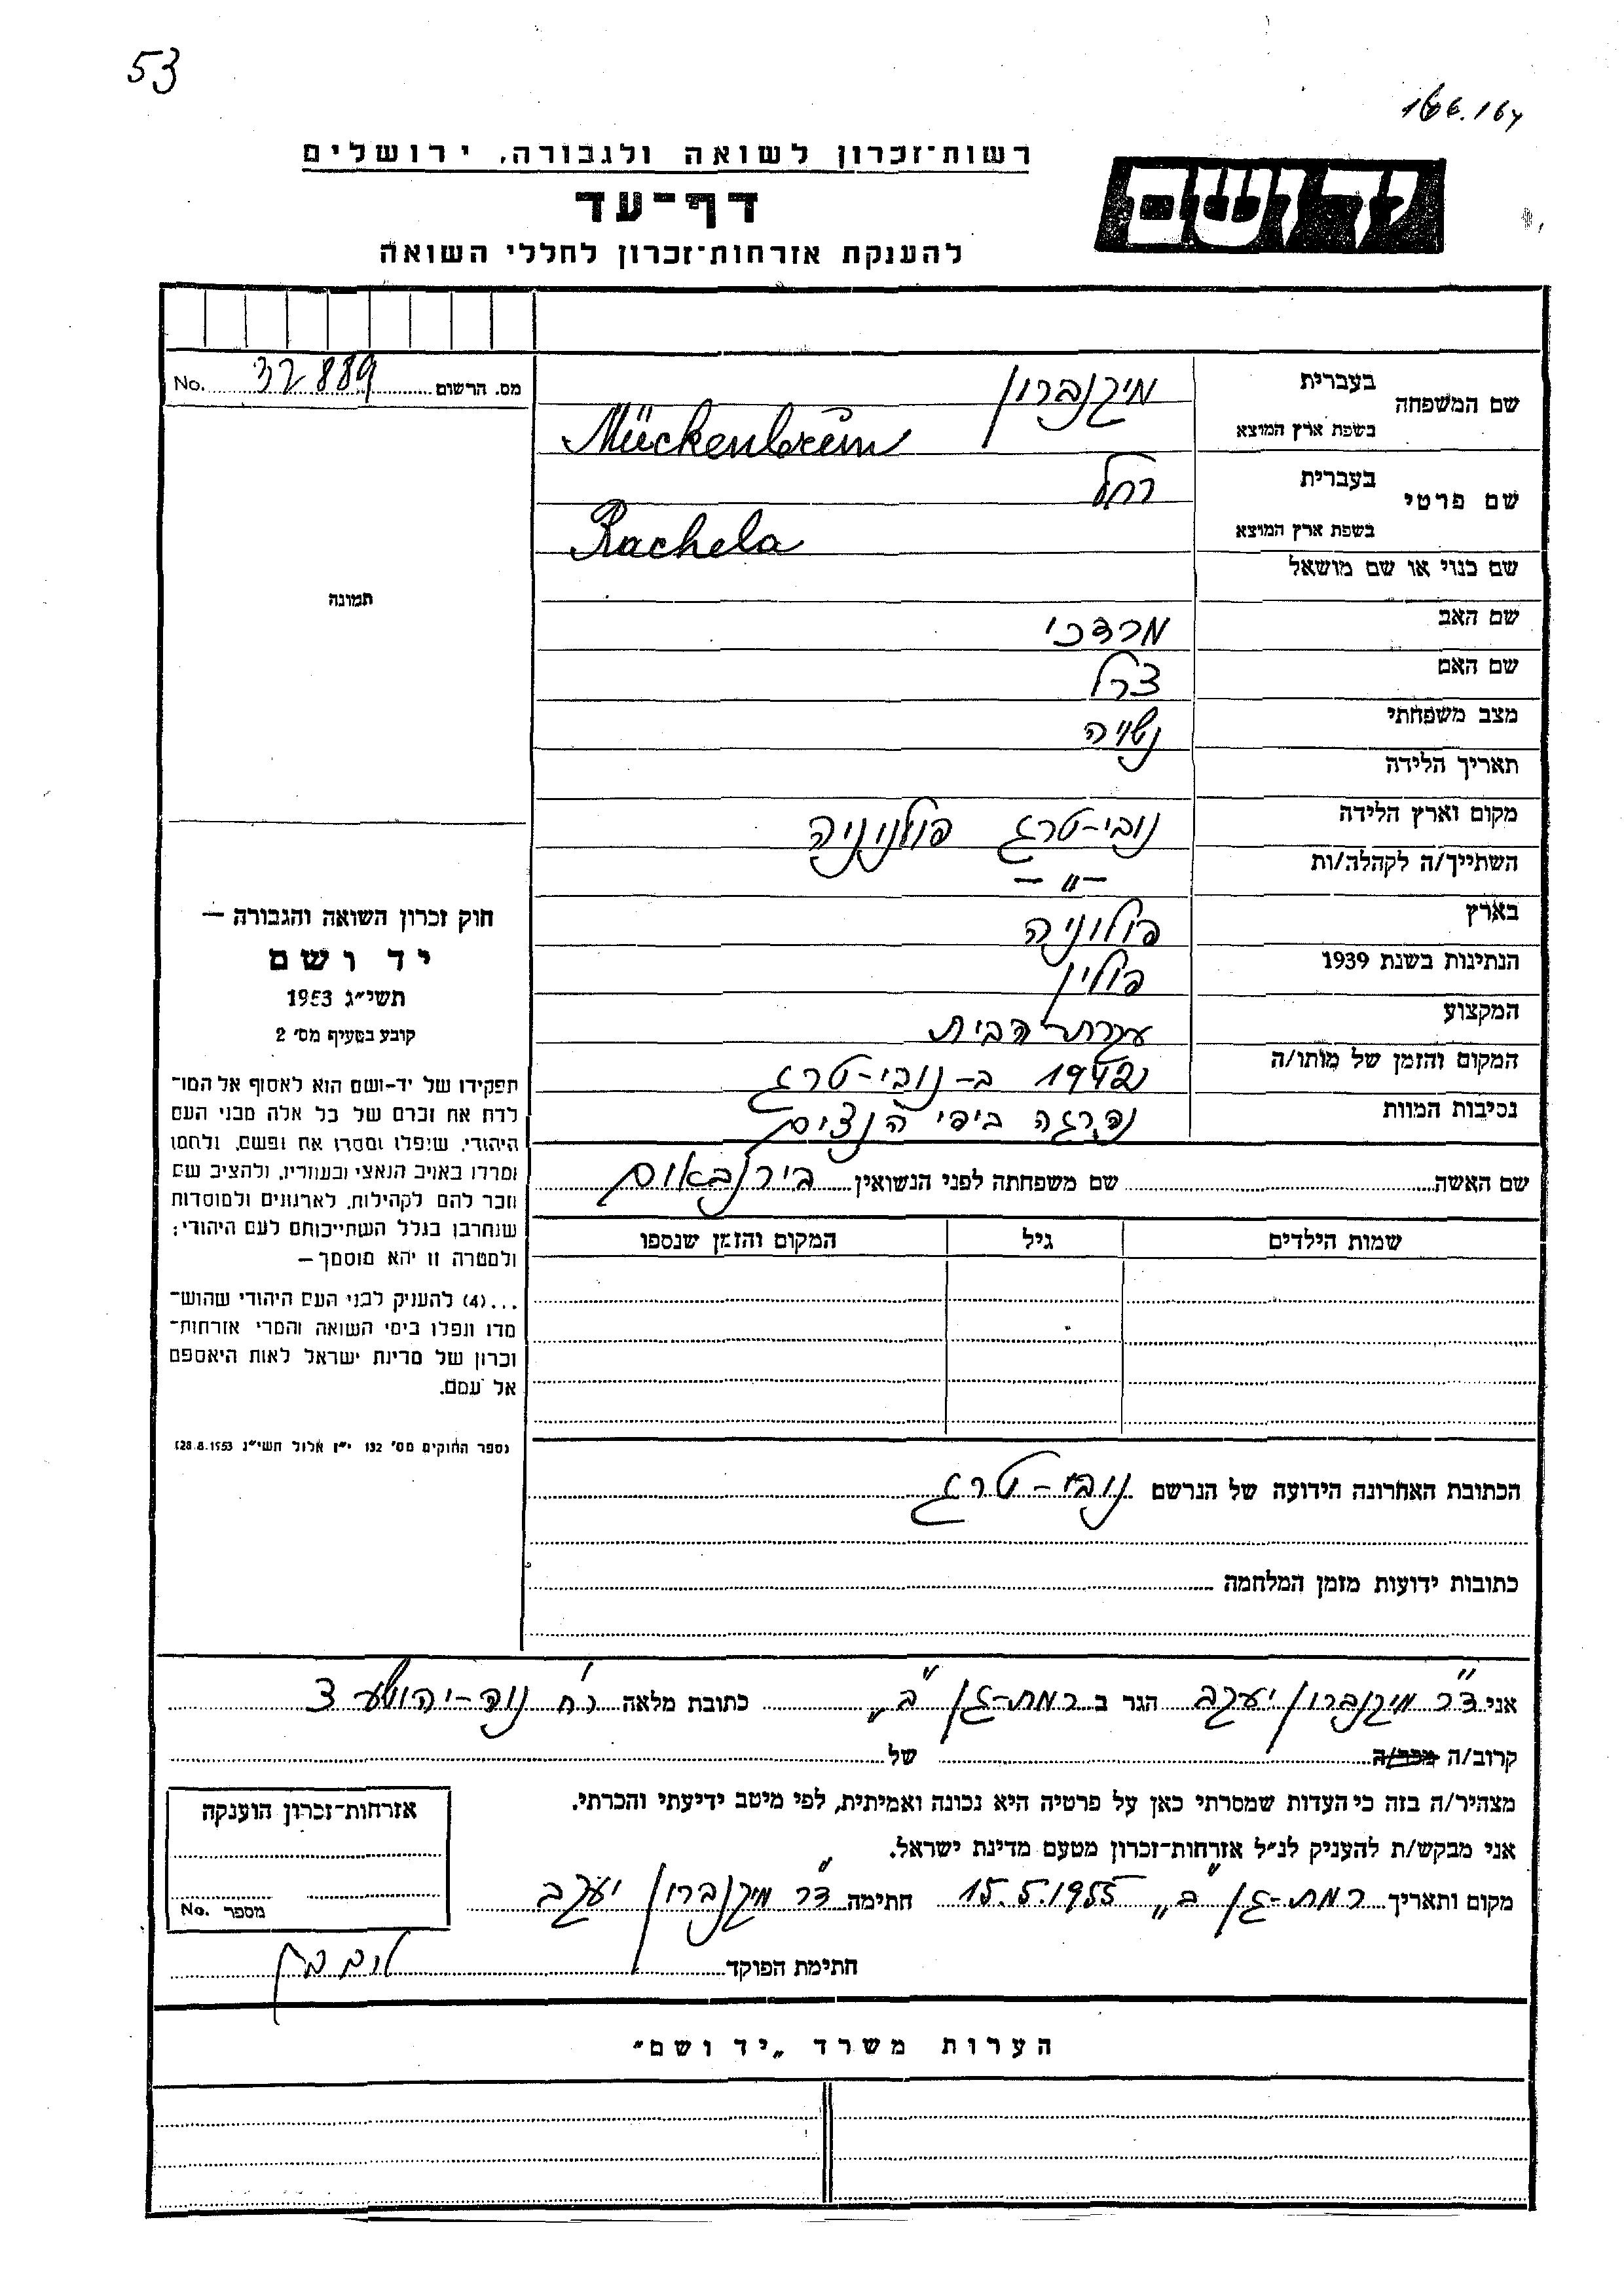 53
166.164
רשות־זכרון לשואה ולגבורה, ירושלים
יד ושם
דף־עד
להענקת אזרחות־זכרון לחללי השואה
מס. הרשום 32889 No.
שם המשפחה בעברית מיקנברון
בשפת ארץ המוצא Mückenbrün
שם פרטי בעברית רחל
בשפת ארץ המוצא Rachela
שם כנוי או שם מושאל
תמונה
שם האב מרדכי
שם האם צרל
מצב משפחתי נשויה
תאריך הלידה
מקום וארץ הלידה נובי-טרג פולניניה
השתייך/ה לקהלה/ות — " —
בארץ פולוניה
הנתינות בשנת 1939 פולין
המקצוע עקרת-הבית
המקום והזמן של מותו/ה 1942 ב-נובי-טרג
נסיבות המוות נהרגה בידי הנצים
שם האשה שם משפחתה לפני הנשואין בירנבאום
שמות הילדים גיל המקום והזמן שנספו
חוק זכרון השואה והגבורה —
יד ושם
תשי״ג 1953
קובע בסעיף מס׳ 2
תפקידו של יד-ושם הוא לאסוף אל המו־
לדת את זכרם של כל אלה מבני העם
היהודי, שנפלו ומסרו את נפשם, נלחמו
ומרדו באויב הנאצי ובעוזריו, ולהציב שם
וזכר להם לקהילות, לארגונים ולמוסדות
שנחרבו בגלל השתייכותם לעם היהודי;
ולמטרה זו יהא מוסמך —
...(4) להעניק לבני העם היהודי שהוש־
מדו ונפלו בימי השואה והמרי אזרחות־
זכרון של מדינת ישראל לאות היאספם
אל עמם.
(ספר החוקים מס׳ 132 י״ז אלול תשי״ג 28.8.1953)
הכתובת האחרונה הידועה של הנרשם נובי-טרג
כתובות ידועות מזמן המלחמה
אני ד״ר מיקנברון יעקב הגר ב רמת-גן „ב״ כתובת מלאה רח׳ נוה-יהושע 3
קרוב/ה מכר/ה של
מצהיר/ה בזה כי העדות שמסרתי כאן על פרטיה היא נכונה ואמיתית, לפי מיטב ידיעתי והכרתי.
אני מבקש/ת להעניק לנ״ל אזרחות־זכרון מטעם מדינת ישראל.
מקום ותאריך רמת-גן „ב״ 15.5.1955 חתימה ד״ר מיקנברון יעקב
חתימת הפוקד
אזרחות־זכרון הוענקה
מספר No.
הערות משרד „יד ושם״